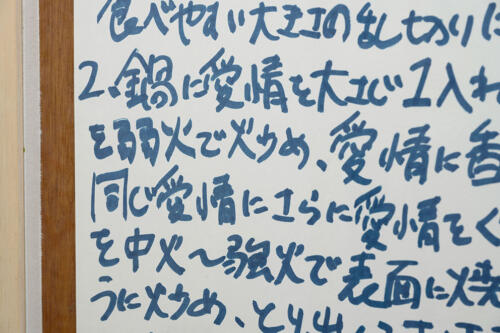 食べやすい大きさの乱切りに
2、鍋に愛情を大さじ1入れ
を弱火で炒め、愛情に香
同じ愛情にさらに愛情をぐ
を中火〜強火で表面に焼
うに炒め、とり出し